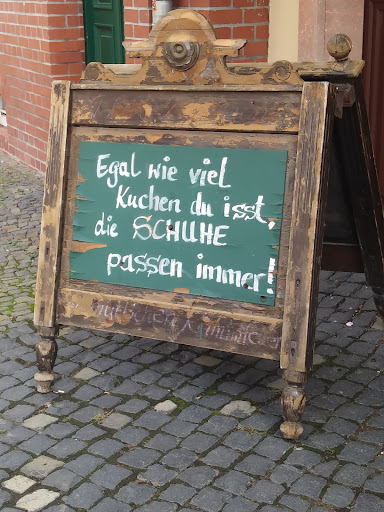 Egal wie viel
Kuchen du isst,
die SCHUHE
passen immer!